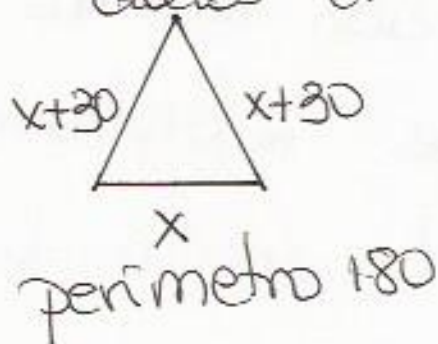 x+30 x+30
x
perímetro 180